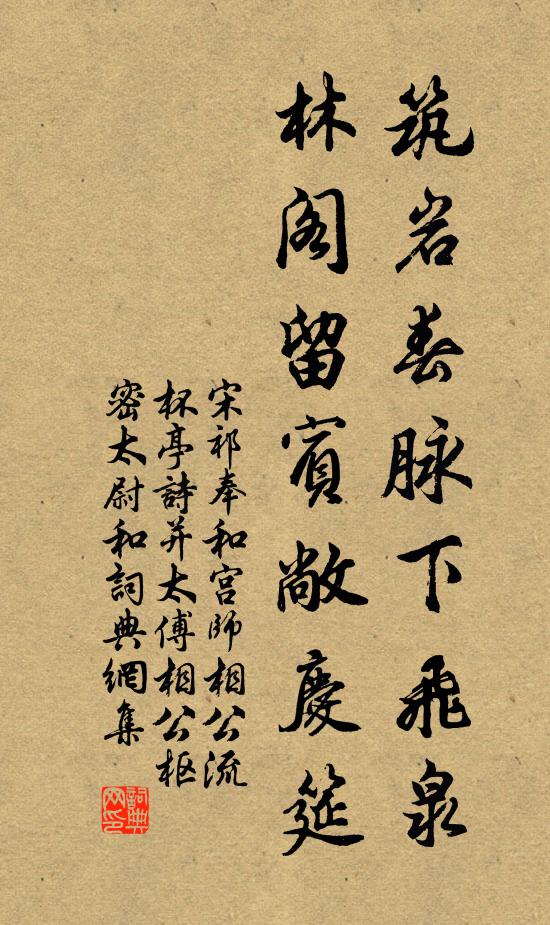 筑岩春脉下飛泉
林阁留賓敞慶筵
宋祁奉和宫師相公流
杯亭詩并太傅相公枢
密太尉和詞典網集
詞典网印